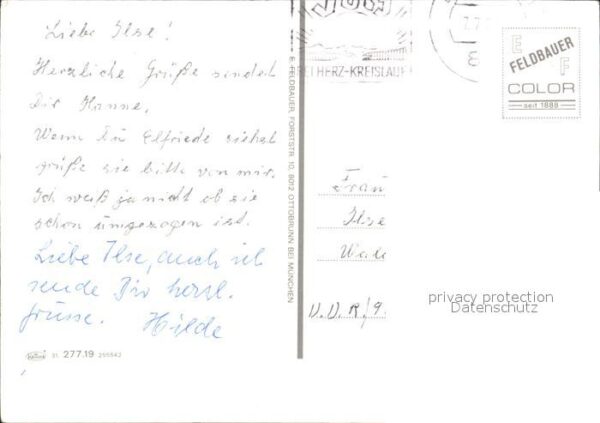 Liebe Ilse!
Herzliche Grüße sendet
Dir Hanne.
Wenn Du Elfriede siehst
grüße sie bitte von mir.
Ich weiß ja nicht ob sie
schon umgezogen ist.
Liebe Ilse, auch ich
sende Dir herzl.
Grüsse. Hilde
31 277.19 295542
E. FELDBAUER, FORSTSTR. 10, 8012 OTTOBRUNN BEI MÜNCHEN
BEI HERZ-KREISLAUF
E F
FELDBAUER
COLOR
seit 1888
Frau
Ilse
privacy protection
Datenschutz